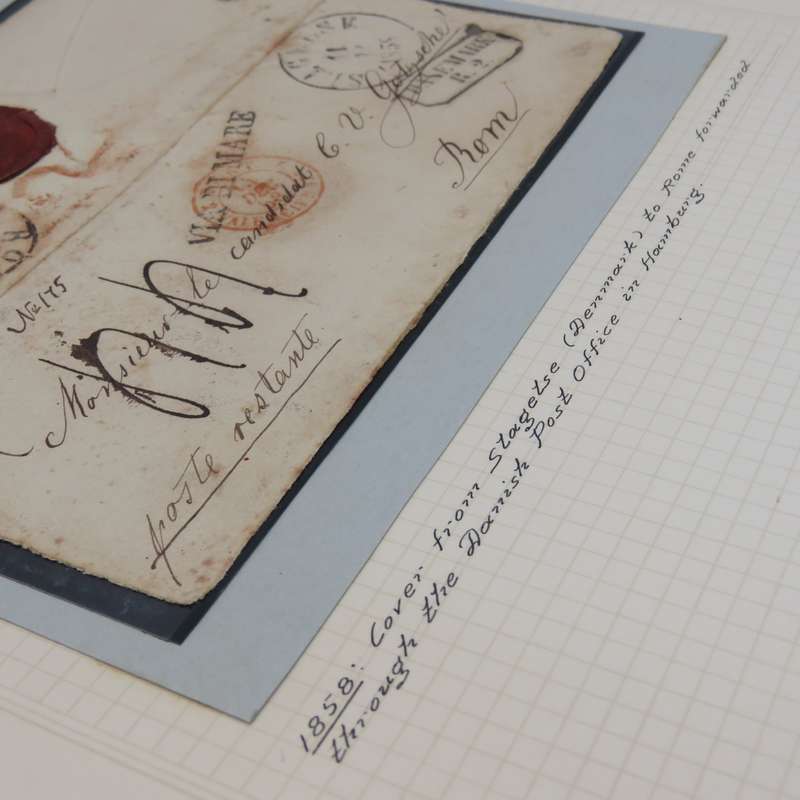 VIA DI MARE
DANEMARK
R. 2.
Nº 175
Monsieur le candidat C. V.
Rom
poste restante
1858: Cover from Slagelse (Denmark) to Rome forwarded
through the Danish Post Office in Hamburg.